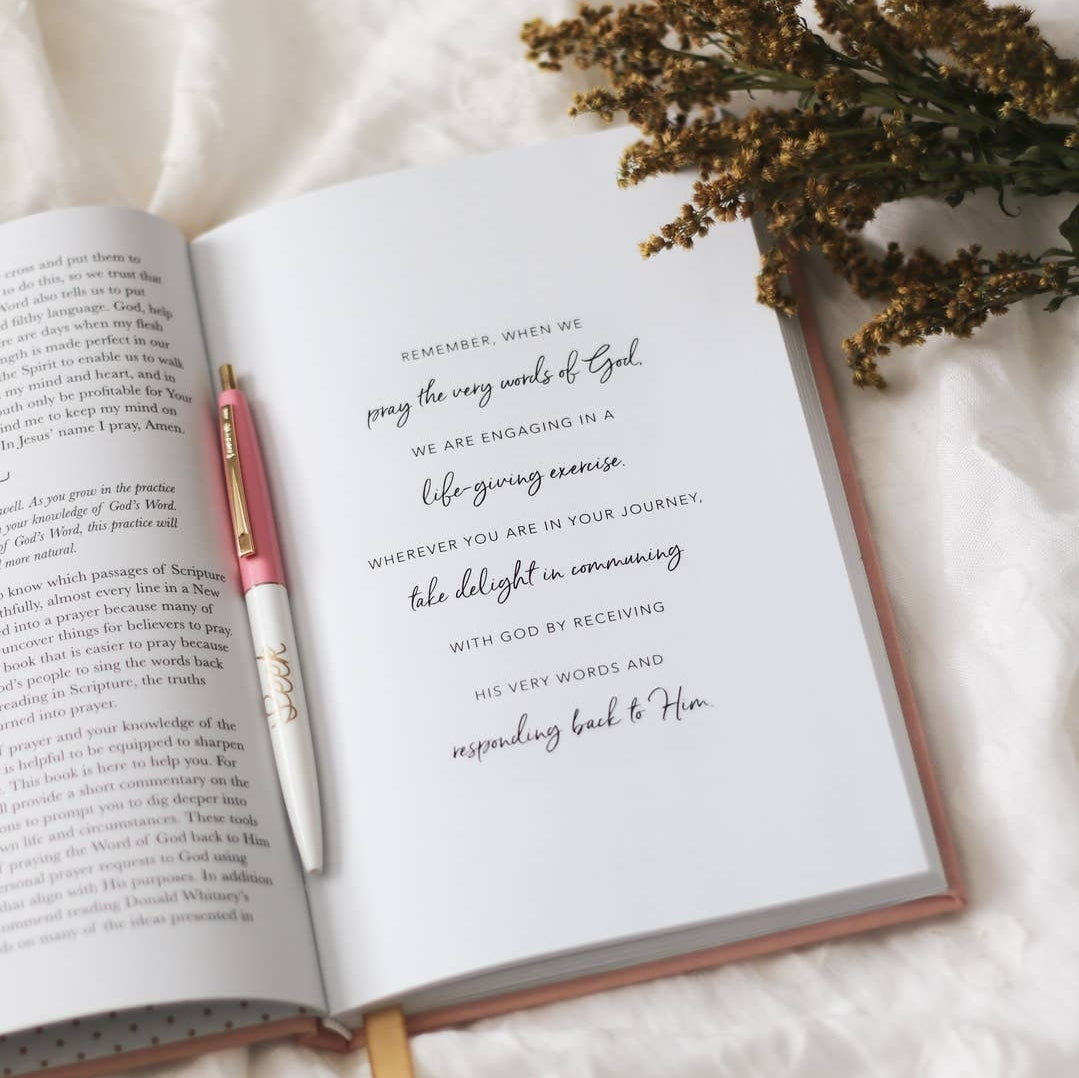 cross and put them to
to do this, so we trust that
Word also tells us to put
filthy language. God, help
re are days when my flesh
ngth is made perfect in our
the Spirit to enable us to walk
my mind and heart, and in
outh only be profitable for Your
ind me to keep my mind on
In Jesus' name I pray, Amen.
well. As you grow in the practice
your knowledge of God's Word.
of God's Word, this practice will
more natural.
know which passages of Scripture
thfully, almost every line in a New
ed into a prayer because many of
uncover things for believers to pray.
book that is easier to pray because
od's people to sing the words back
reading in Scripture, the truths
urned into prayer.
prayer and your knowledge of the
is helpful to be equipped to sharpen
This book is here to help you. For
ll provide a short commentary on the
ons to prompt you to dig deeper into
wn life and circumstances. These tools
f praying the Word of God back to Him
ersonal prayer requests to God using
that align with His purposes. In addition
ommend reading Donald Whitney's
ds on many of the ideas presented in
Seek
REMEMBER, WHEN WE
pray the very words of God,
WE ARE ENGAGING IN A
life-giving exercise.
WHEREVER YOU ARE IN YOUR JOURNEY,
take delight in communing
WITH GOD BY RECEIVING
HIS VERY WORDS AND
responding back to Him.